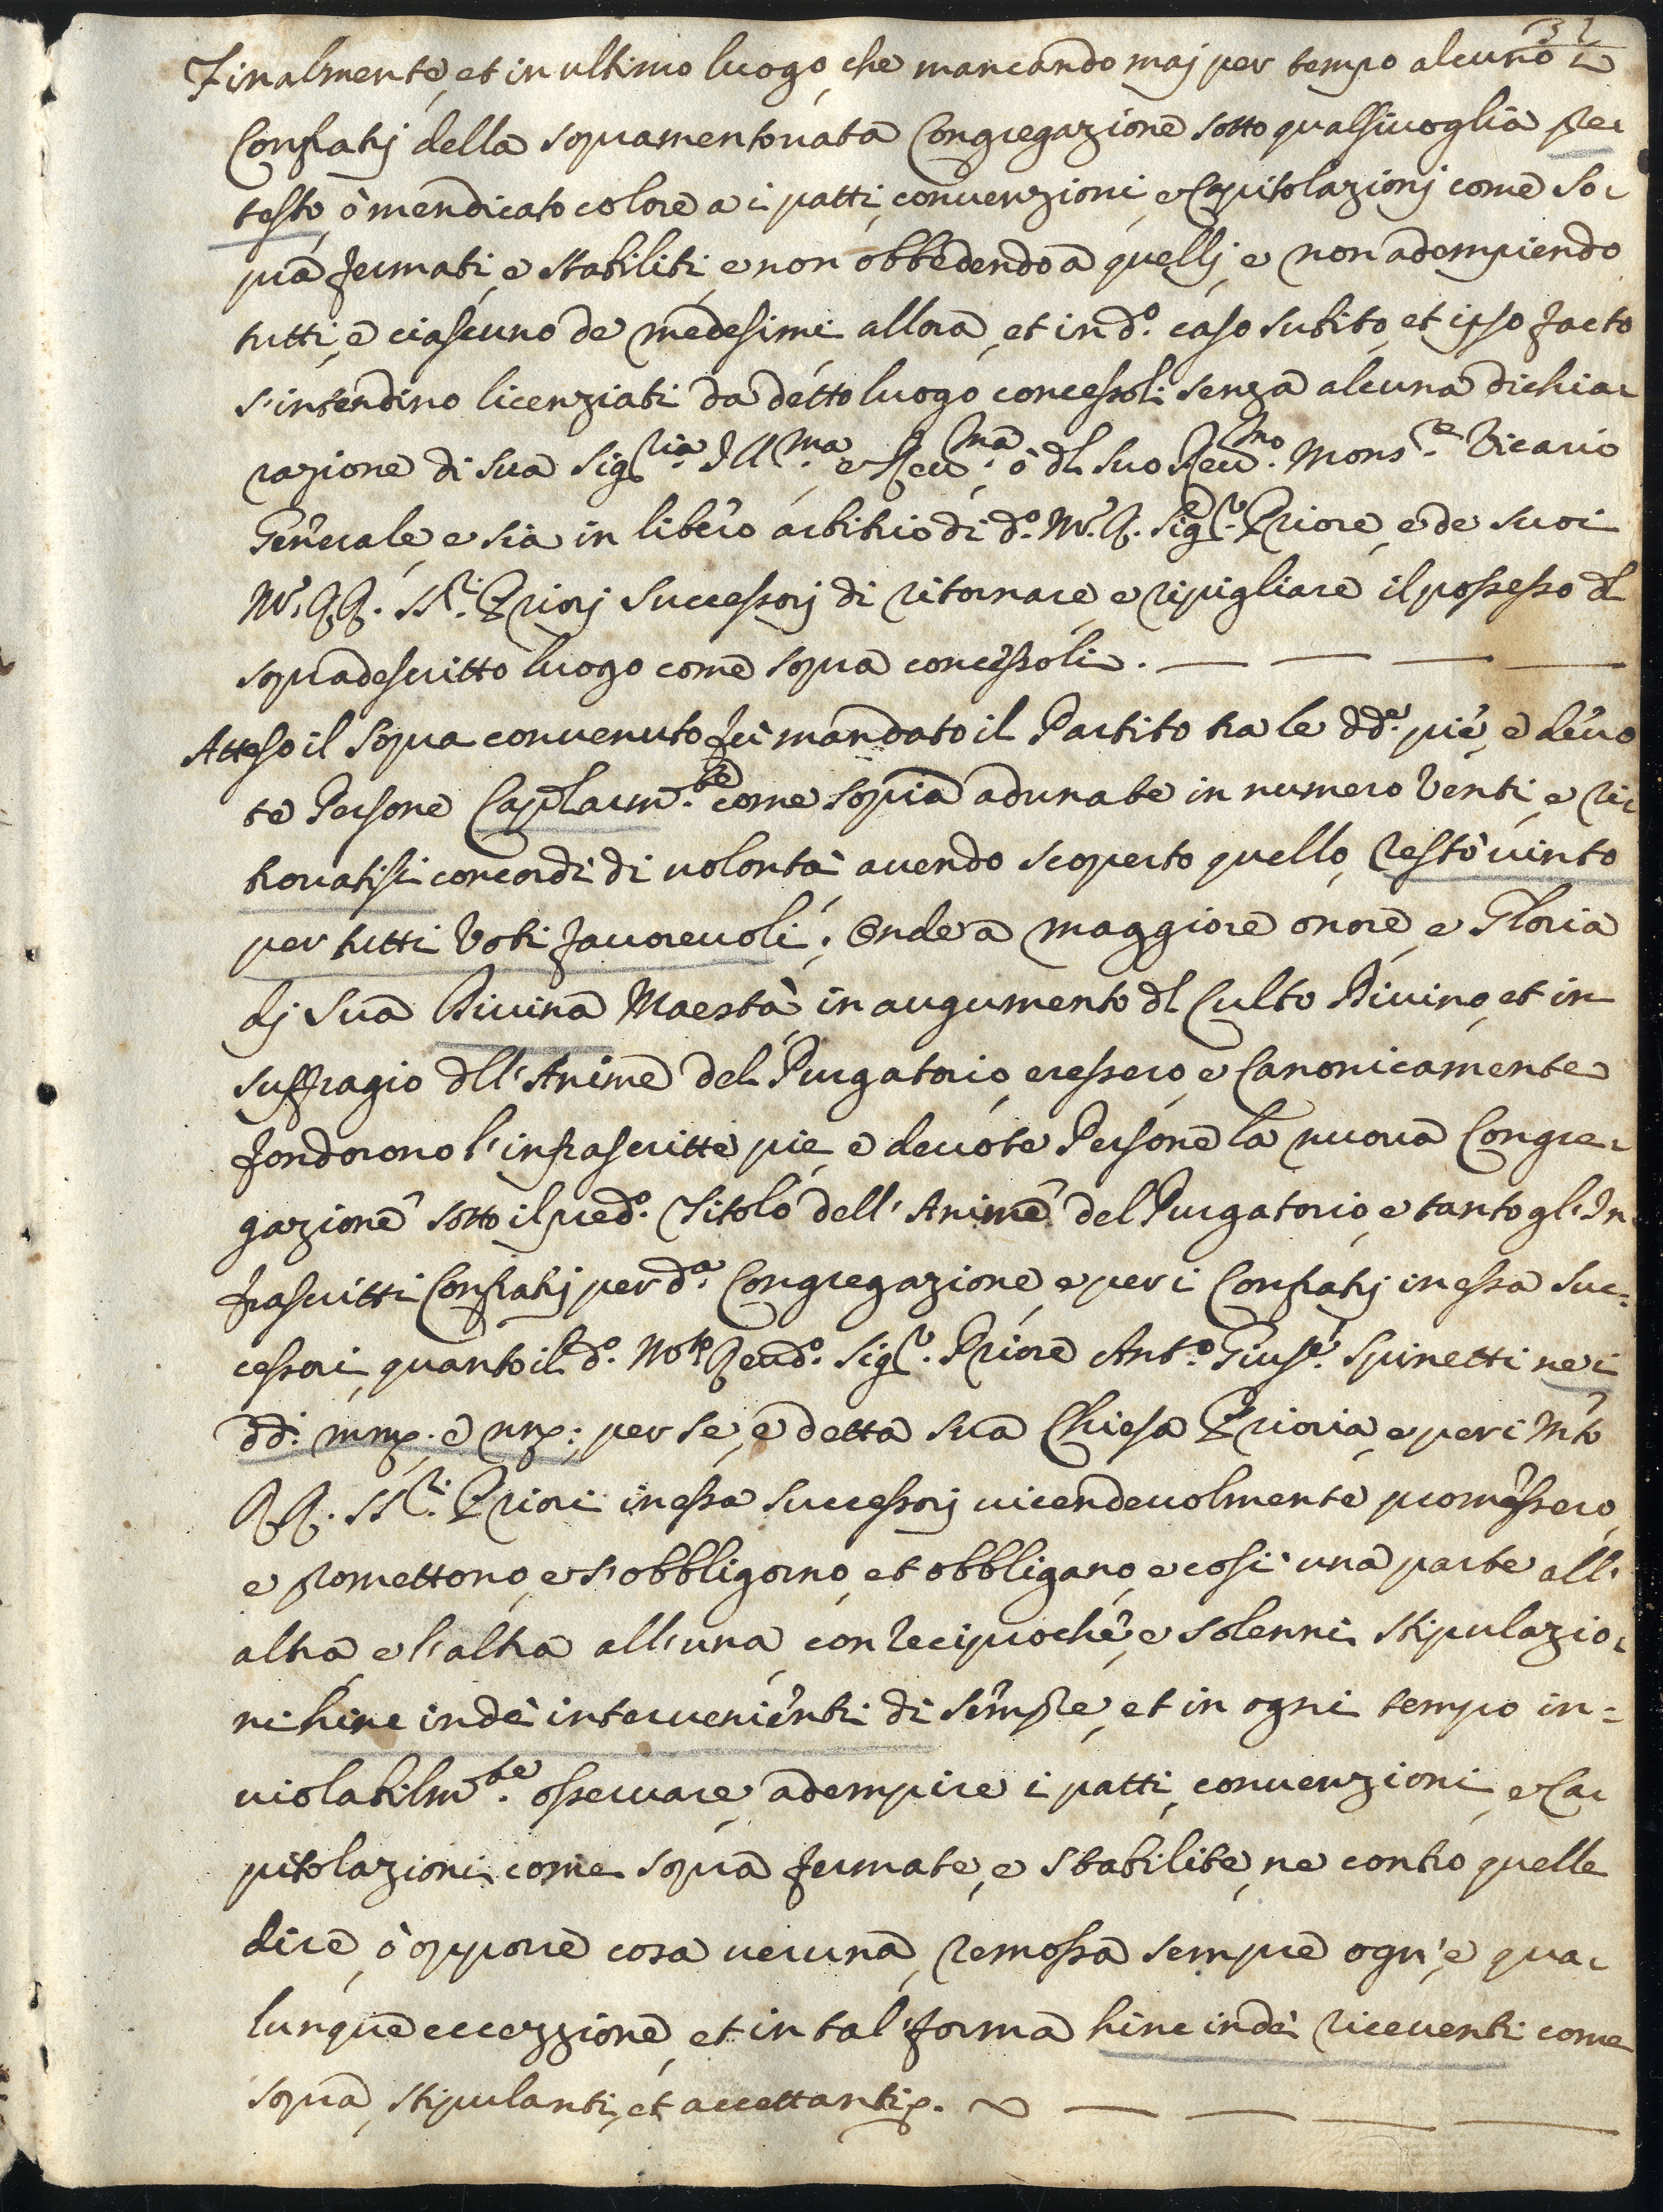 32
Finalmente, et in ultimo luogo, che mancando maj per tempo alcuno i
Confratj della sopramentovata Congregazione sotto qualsivoglia pre-
testo, ò mendicato colore a i patti, convenzioni, e Capitolazionj come so-
pra fermati, e stabiliti, e non obbedendo a quellj, e non adempiendo
tutti, e ciascuno de medesimi allora, et in d.o caso subito, et ipso facto
s'intendino licenziati da detto luogo concessoli senza alcuna dichia-
razione di sua Sig.ria Ill.ma, e Rev.ma, ò dl suo Rev.mo Mons.re Vicario
Generale, e sia in libero arbitrio di d.o M.R. Sig.r Priore, e de suoi
M. RR. SS.ri Priorj Successorj di ritornare, e ripigliare il possesso dl
sopradescritto luogo come sopra concessoli. — — — —
Atteso il sopra convenuto fù mandato il Partito tra le dd.e pie, e devo
te Persone Caplarm.te come sopra adunate in numero Venti, e ri-
trovatisi concordi di volontà avendo scoperto quello, restò vinto
per tutti Voti favorevoli; Onde a maggiore onore, e Gloria
dj Sua Divina Maestà, in augumento dl Culto Divino, et in
suffragio dll'Anime del Purgatorio, eressero, e Canonicamente
fondorono l'infrascritte pie, e devote Persone la nuova Congre-
gazione sotto il pred.o Titolo dell'Anime del Purgatorio, e tanto gl'In-
frascritti Confratj per d.a Congregazione, e per i Confratj in essa Suc=
cessori, quanto il d.o Mto Revd.o Sig.r Priore Ant.o Gius.e Spinetti ne i
dd. mm. e nn. per se, e detta sua Chiesa Prioria, e per i Mto
RR. SS.ri Priori in essa Successorj vicendevolmente promessero,
e promettono, e s'obbligorno, et obbligano, e così una parte all'
altra, e l'altra all'una, con reciproche, e solenni stipulazio-
ni hinc inde intervenienti di sempre, et in ogni tempo in=
violabilm.te osservare, adempire i patti, convenzioni, e Ca-
pitolazioni come sopra fermate, e stabilite, ne contro quelle
dire, ò opporre cosa veruna, remossa sempre ogn'e, qua-
lunque eccezzione, et in tal forma hinc inde riceventi come
sopra, stipulanti, et accettanti. — — — —